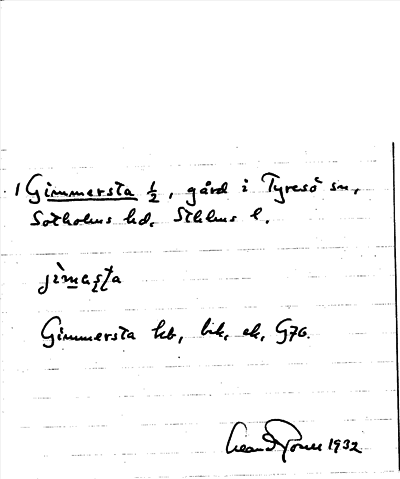 1 Gimmersta ½, gård i Tyresö sn,
Sotholms hd, Sthlms l.
Gimmersta kb, bik, ek, G70.
1932